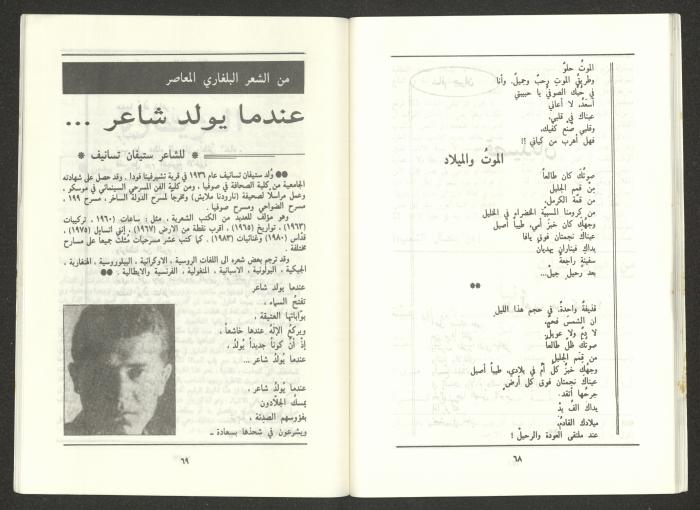 الموتُ حلوٌ
وطريقُ الموتِ رحبٌ وجميلٌ. وأنا
في حُبّك الصوفيّ يا حبيبتي
أسعدُ. لا أعاني
عيناك في قلبي.
وقلبي صُنْعُ كفيك.
فهل أهرب من كياني ؟!
الموتُ والميلاد
صوتُك كان طالعاً
مِنْ قمم الجليل
من قمّة الكرمل.
من كرومنا المسبيّة الخضراء في الخليل
وجهُك كان خبزَ أمي. طيباً أصيل
عيناك نجمتان فوق يافا
يداك قيثاران يهديان
سفينة راجعة
بعد رحيل. جيل...
●●
قذيفةٌ واحدةٌ. في حجم هذا الليل.
ان الشمسَ فحمٌ.
لا دمعٌ ولا عويلٌ.
صوتك ظل طالعاً
من قِمَمِ الجليل
وجهُك خبزُ كل أمّ في بلادي. طيباً أصيل
عيناك نجمتان فوق كل أرض
جرحُها أتقد.
يداك الفُ يدْ
ميلادك القادمُ.
عند ملتقى العودة والرحيل !
٦٨
من الشعر البلغاري المعاصر
عندما يولد شاعر ...
* للشاعر ستيفان تسانيف *
●● وُلد ستيفان تسانيف عام ١٩٣٦ في قرية تشيرفينا فودا . وقد حصل على شهادته
الجامعية من كلية الصحافة في صوفيا ، ومن كلية الفن المسرحي السينمائي في موسكو .
وعمل مراسلاً لصحيفة (نارودنا ملاديش) ومخرجاً لمسرح الدولة الساخر ، مسرح ١٩٩ ،
مسرح الضواحي ومسرح صوفيا .
وهو مؤلف للعديد من الكتب الشعرية ، مثل : ساعات (١٩٦٠) ، تركيبات
(١٩٦٣) ، تواريخ (١٩٦٥) ، اقرب نقطة من الارض (١٩٦٧) ، إنني اتسايل (١٩٧٥) ،
قدّاس (١٩٨٠) وغنائيات (١٩٨٣) . كما كتب عشر مسرحيات مُثّلت جميعاً على مسارح
مختلفة .
وقد ترجم بعض شعره الى اللغات الروسية ، الاوكرانية ، البيلوروسية ، الهنغارية ،
الجيكية ، البولونية ، الاسبانية ، المنغولية ، الفرنسية والايطالية . ●●
عندما يولد شاعر
تفتحُ السماء .
بوّاباتها العتيقة ،
ويركعُ الإلهُ عندها خاشعاً .
إذ أنّ كوناً جديداً يُولد ،
عندما يُولد شاعر ...
عندما يولدُ شاعر .
يُمسكُ الجلّادون
بفؤوسهم الصدِئة ،
ويشرعون في شحذها بسعادة ـ
٦٩